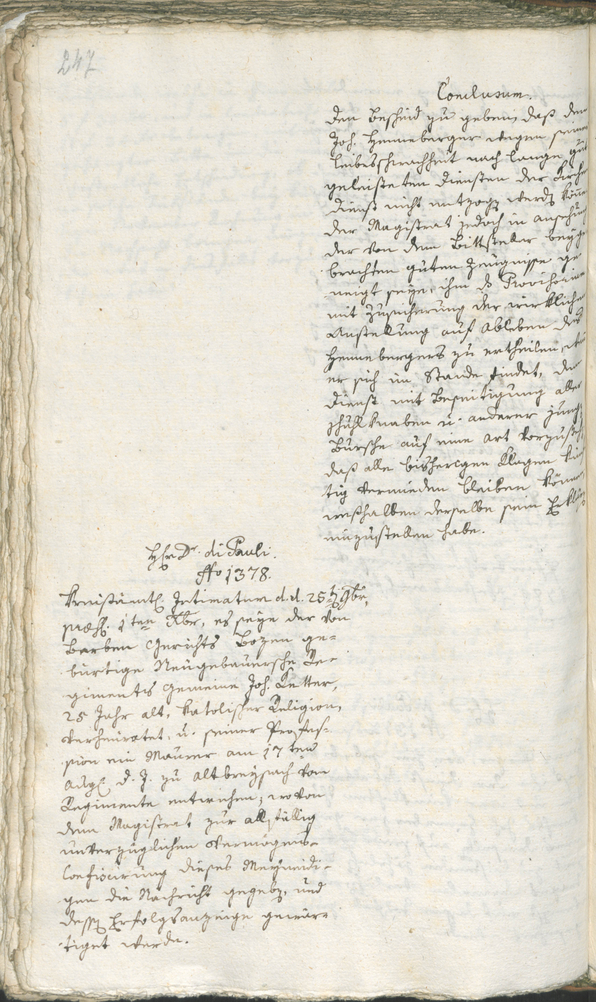 247
Conclusum
den Bescheid zu geben, daß dem
Joh. Henneberger wegen seiner
Leibsschwachheit nach lange gut
geleisteten Diensten der Kirchen
dienst nicht entzogen werden könne
der Magistrat jedoch in ansehung
der von dem Bittsteller beyge
brachten guten Zeugnisse ge
neigt seye, ihm das Provisorium
mit Zusicherung der wirklichen
Anstellung auf ableben des
Hennebergers zu ertheilen, wenn
er sich im Stande findet, den
Dienst mit Beseitigung aller
Schuhlknaben u. anderer junger
Bursche auf eine art vorzustehen
daß alle bisherigen Klagen künf
tig vermieden bleiben können
weßhalben derselbe sein Erklärung
einzustellen habe.
Hr. Dr. di Pauli.
No 1378.
Kreisämtl. Intimatum d.d. 25ten 9br,
praes. 1ten Xbr, es seye der von
Barben Gerichts Bozen ge-
bürtige Neugebauersche Re-
giments Gemeine Joh. Ketter,
25 Jahr alt, katolischer Religion,
verheiratet, u. seiner Profes-
sion ein Maurer am 17ten
Augt. d. J. zu altbreysach vom
Regimente entwichen; wovon
dem Magistrat zur allfällig
unverzüglichen Vermögens-
Confiscirung dieses Meyneidi-
gen die Nachricht gegeben, und
dessen Erfolgsanzeige gewär-
tiget werde.